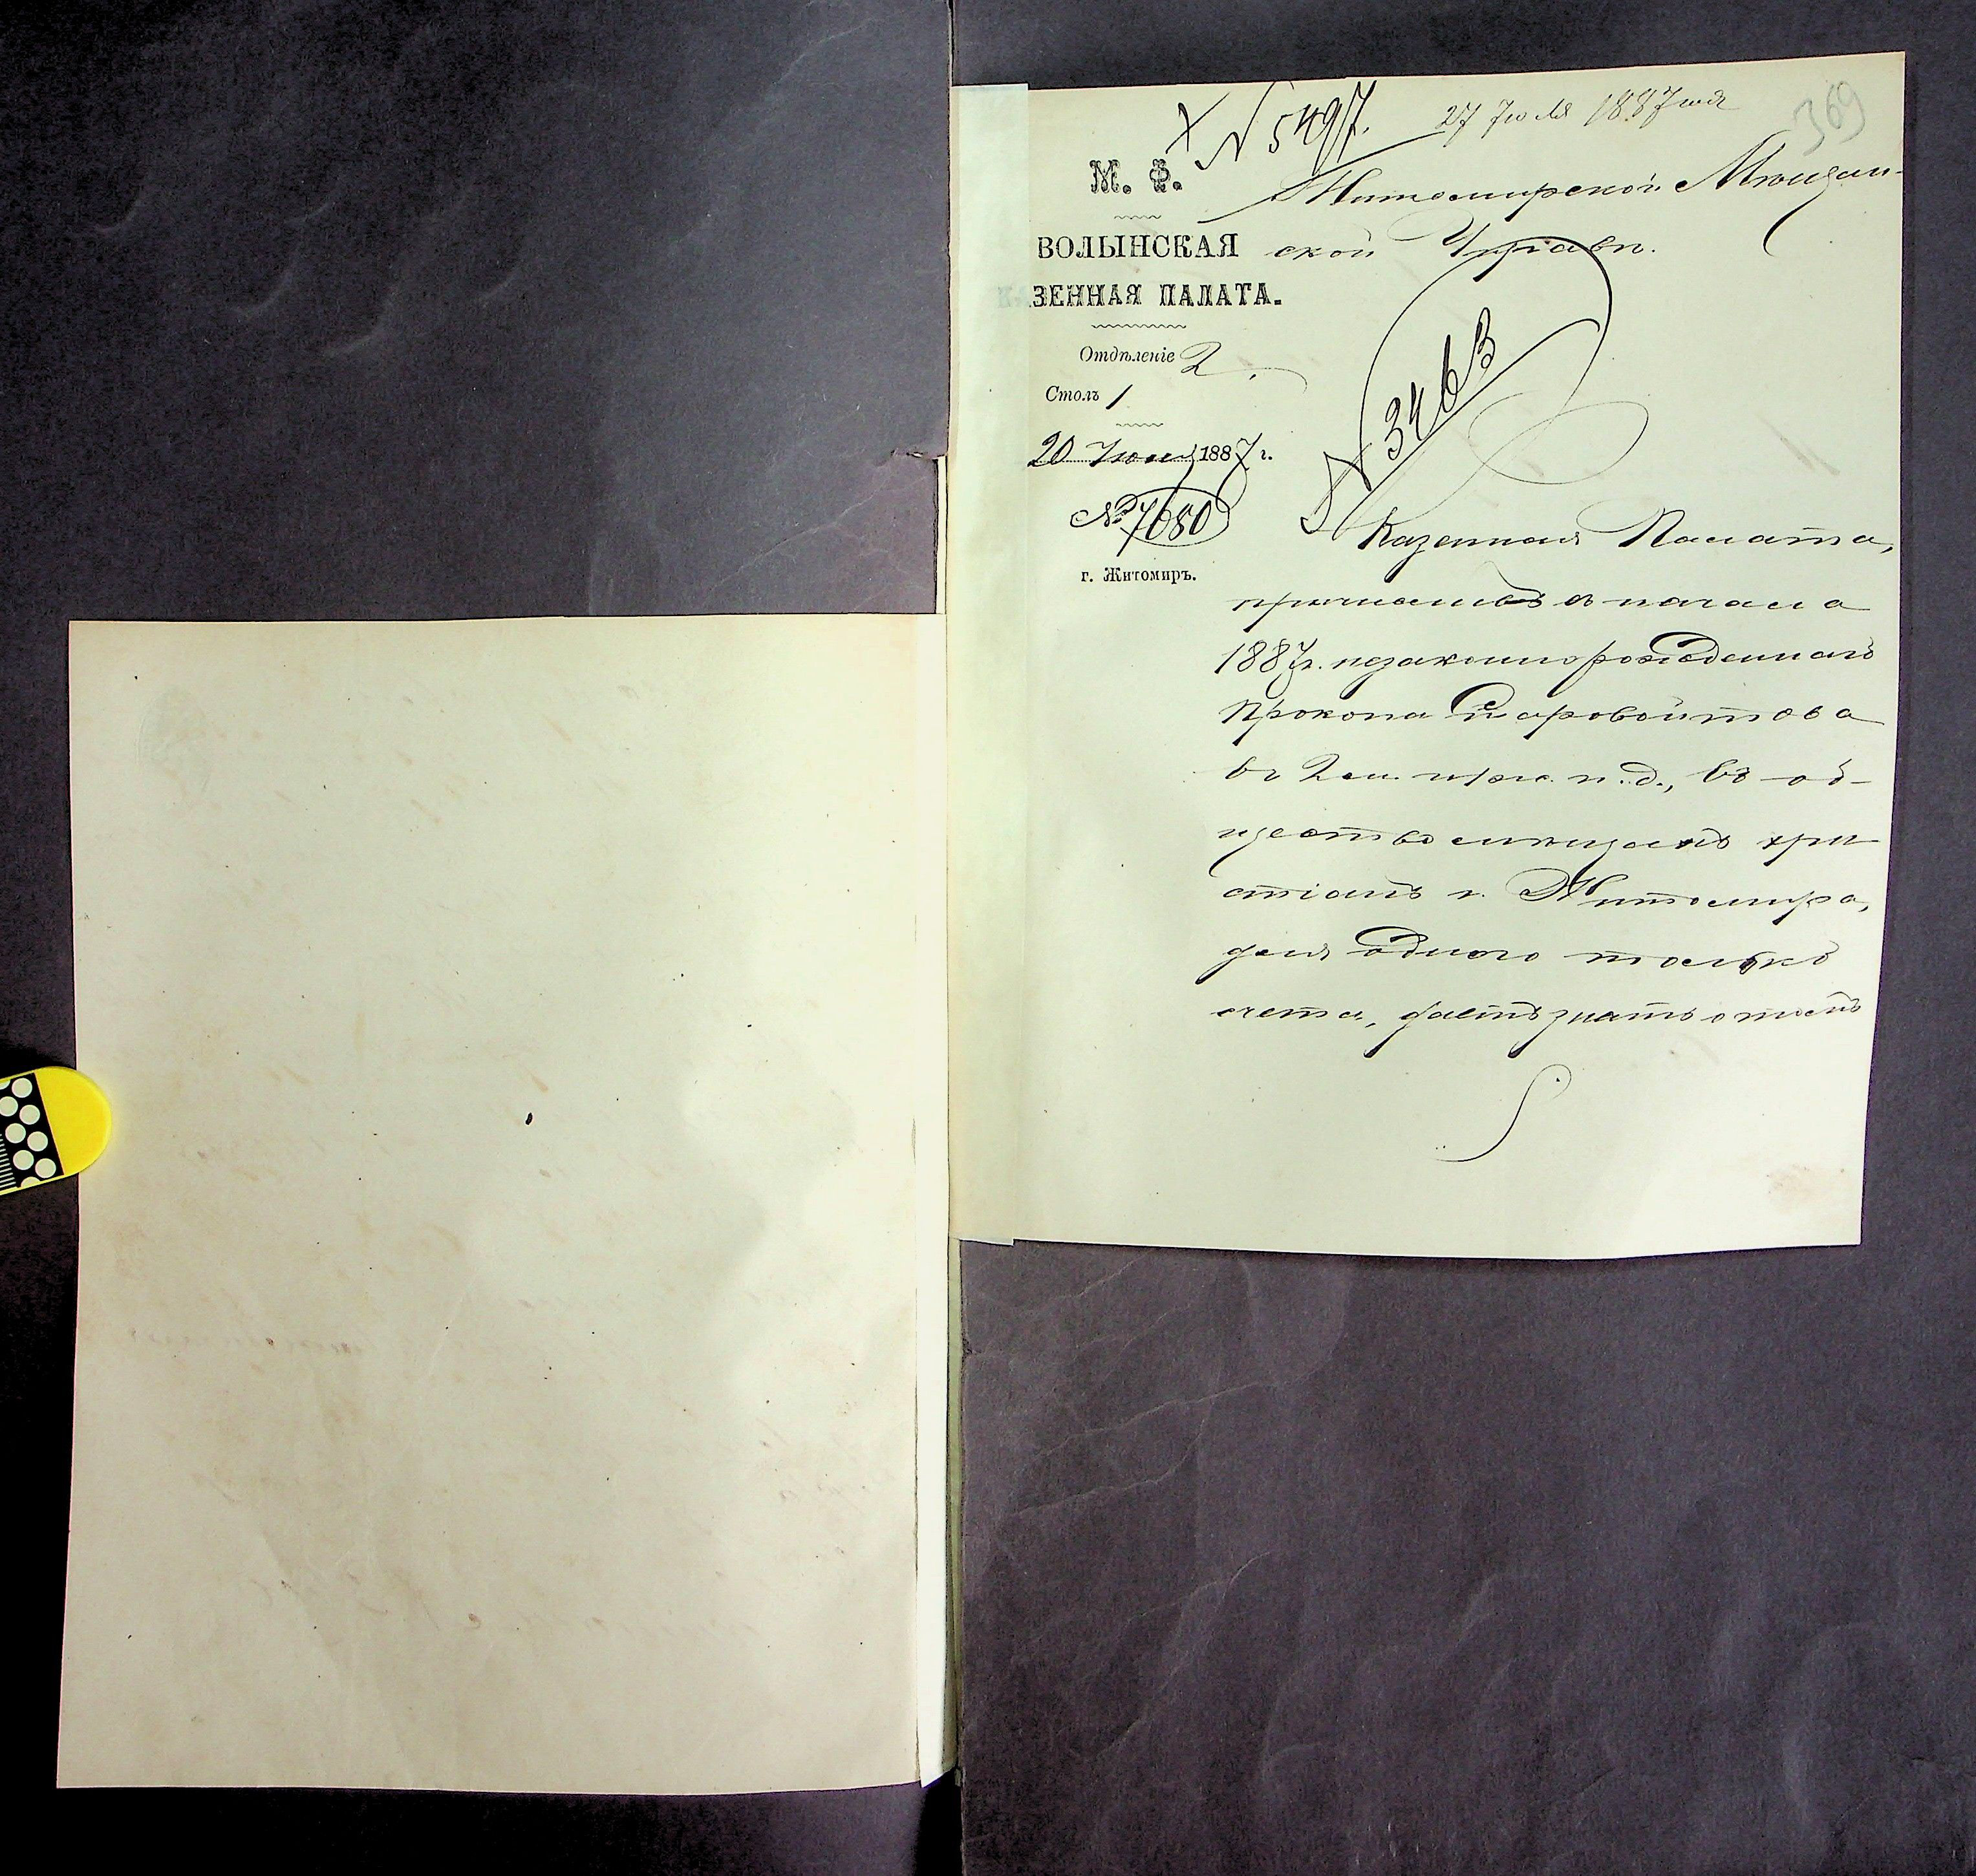 369
X N 5497. 27 Июля 1887 года
М. Ф.
Житомирской Мѣщан-
ской Управѣ.
ВОЛЫНСКАЯ
КАЗЕННАЯ ПАЛАТА.
Отдѣленіе 2.
Столъ 1
20 Июля 1887 г.
№ 7680
г. Житомиръ.
N 3463
Казенная Палата,
причисливъ съ начала
1887 г. незаконнорожденнаго
Прокопа Старовойтова
въ 2 ... п. д., въ об-
щество мѣщанъ хри
стіанъ г. Житомира,
для одного только
счета, даетъ знать о томъ